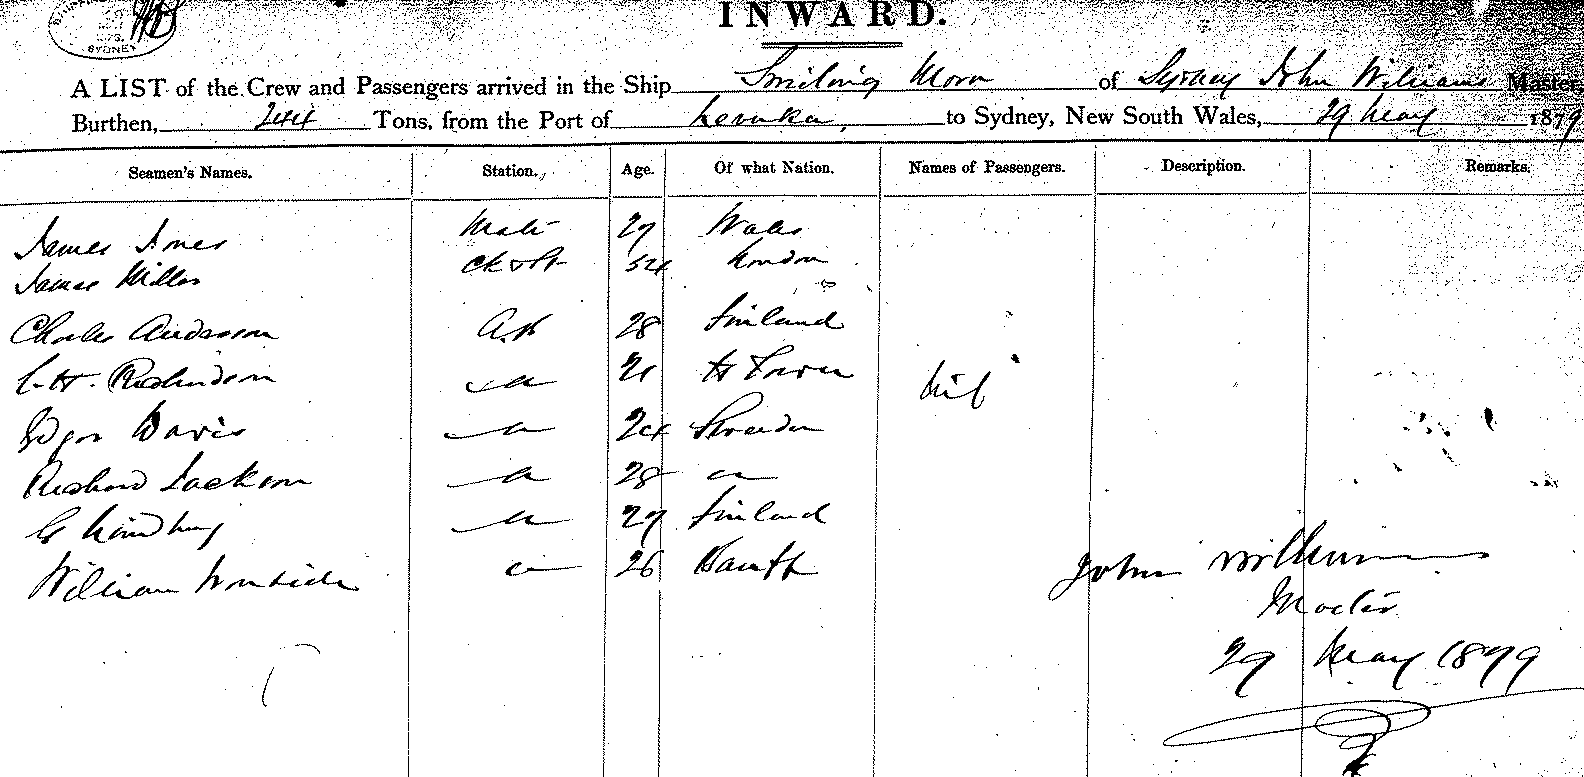 SYDNEY
INWARD.
A LIST of the Crew and Passengers arrived in the Ship Smiling Morn of Sydney John Williams Master,
Burthen, 244 Tons, from the Port of Levuka, to Sydney, New South Wales, 29 May 1879
Seamen's Names. Station. Age. Of what Nation. Names of Passengers. Description. Remarks.
James Jones Mate 27 Wales
James Miller Ck & St 54 London
Charles Anderson A.B 28 Finland
C. H. Richardson 21 H Town
Edgar Davis 24 Sweden
Richard Jackson 28
G Lindberg 27 Finland
William 26 Banff
Nil
John Williams
Master
29 May 1879